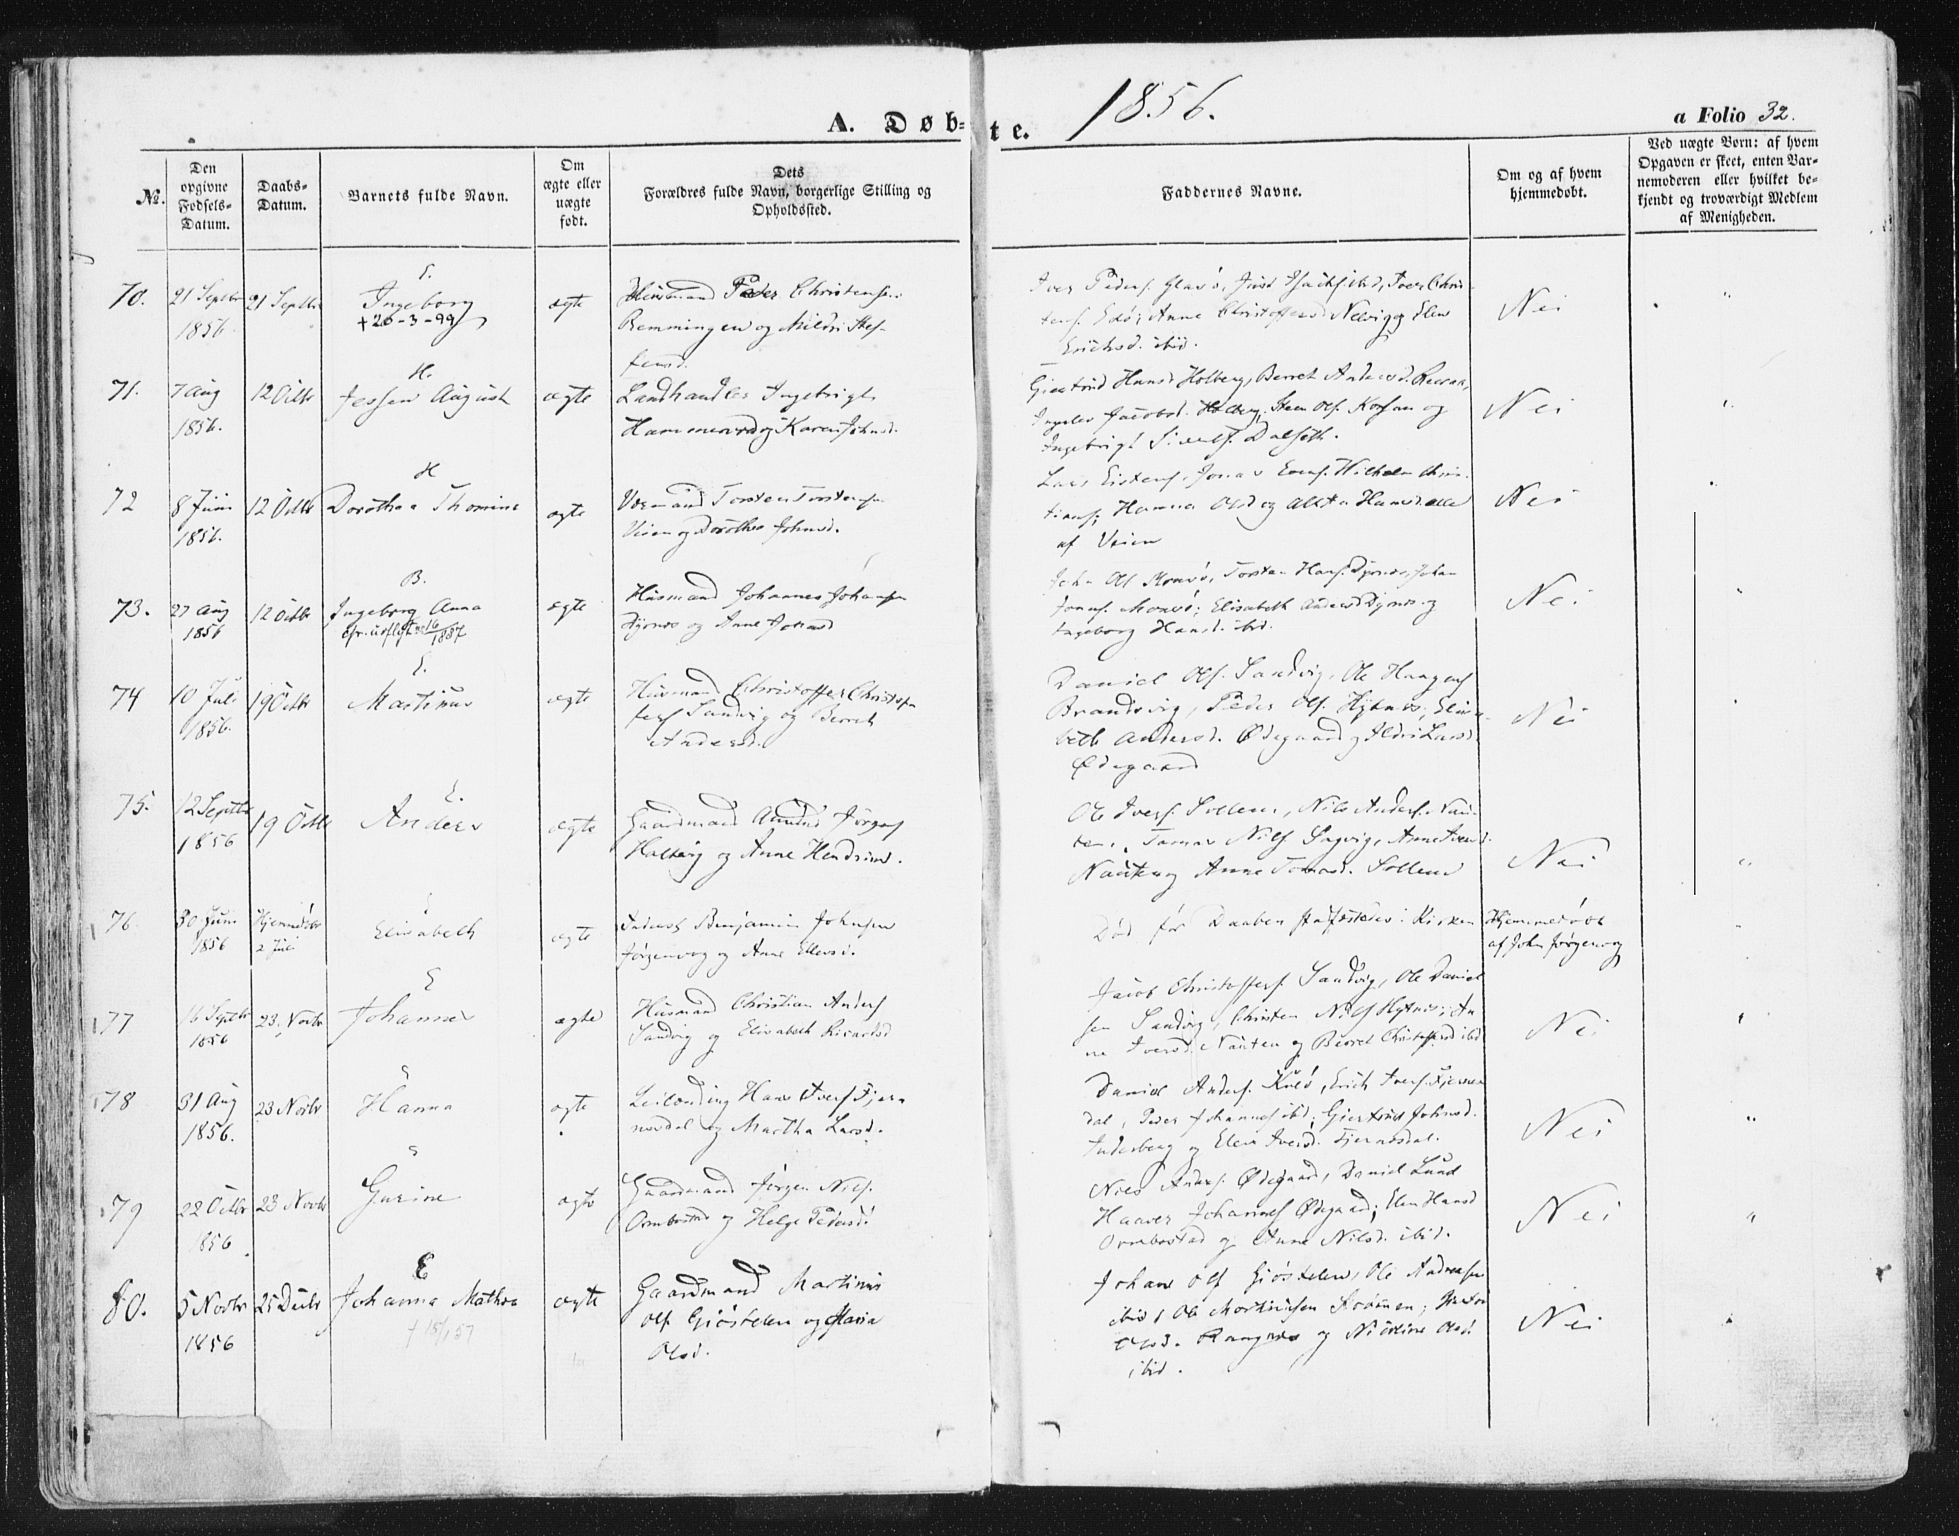 A. Døb-
te.
1856.
a Folio 32.
No.
Den
opgivne
Fødsels-
Datum.
Daabs-
Datum.
Barnets fulde Navn.
Om
ægte eller
uægte
født.
Dets
Forældres fulde Navn, borgerlige Stilling og
Opholdssted.
Faddernes Navne.
Om og af hvem
hjemmedøbt.
Ved uægte Børn: af hvem
Opgaven er skeet, enten Bar-
nemoderen eller hvilket be-
kjendt og troværdigt Medlem
af Menigheden.
70.
21 Septbr
1856.
21 Septbr
E.
Ingeborg
+26-3-99
ægte
Husmand Peder Christensen
og Mildri Stef-
fensd.
Iver Peders. Glasø, Iver Chris-
tens. Edø, Anne Christoffersd. og Elen
Erichsd. ibid.
Nei
71.
7 Aug
1856.
12 Octbr
H.
Jessen August
ægte
Landhandler Ingebrigt
og Karen Johnsd.
Giertrud Hansd. Holberg, Berret Andersd.
Jacobsd. Holberg, Steen Ols. og
Ingebrigt Dalseth.
Nei
72
8 Juni
1856.
12 Octbr
H
Dorothea Thomine
ægte
Torsten Torstensen
Veien og Dorothea Johnsd.
Lars Eistens. Jonas Wilhelm Chris-
tians. Hanna Olsd. og Hansd. alle
af Veien
Nei
73.
27 Aug
1856
12 Octbr
B.
Ingeborg Anna
cfr. udflyt. no 16/1887
ægte
Husmand Johannes Johans.
Dyrnes og Anne Johnsd.
John Ols. Torsten Hans. Dyrnes, Johan
Elisabeth Andersd. Dyrnes og
Ingeborg Hansd. ibid.
Nei
74
10 Juli
1856.
19 Octbr
E.
Martinus
ægte
Husmand Christoffer Christof-
fers. Sandvig og Berret
Andersd.
Daniel Ols. Sandvig, Ole Haagens.
Brandsvig, Peder Ols. Hytnes, Elisa-
beth Andersd. Ødegaard og Ildri Larsd.
Ødegaard
Nei
75.
12 Septbr
1856
19 Octbr
E.
Anders
ægte
Gaardmand Amund Jørgens.
og Anne Hendriksd.
Ole Ivers. Sollem, Nils Anders. Nau-
sten, Tomas Nils. Anne Iversd.
Nausten og Anne Tomasd. Sollem
Nei
76.
30 Juni
1856
Hjemmedøbt
2 Juli
E
Elisabeth
ægte
Inderst Benjamin Johnsen
Jørgenvog og Anne Ellensd.
Død før Daaben stadfæstedes i Kirken
Hjemmedøbt
af John Jørgenvog
77
16 Septbr
1856
23 Novbr
E
Johannes
ægte
Husmand Christian Anders.
Sandvig og Elisabeth Ricartsd.
Jacob Christoffers. Sandvig, Ole Daniel-
sen Sandvig, Christen Nils. Hytnes, An-
ne Iversd. Nausten og Berret Christoffersd. ibid
Nei
78
31 Aug
1856.
23 Novbr
E
Hanna
ægte
Leilænding Hans Ivers. Fjer-
nesdal og Martha Larsd.
Daniel Anders. Kulø, Erich Ivers. Fjernes-
dal, Peder Johannes. ibid; Giertrud Johnsd.
Inderberg og Elen Iversd. Fjernesdal.
Nei
79
22 Octbr
1856
23 Novbr
E
Gurine
ægte
Gaardmand Jørgen Nils.
Ormbostad og Helge Pedersd.
Nils Anders. Ødegaard, Daniel Lund
Haaver Johannes. Ødegaard; Elen Hansd.
Ormbostad og Anne Nilsd. ibid.
Nei
80.
5 Novbr
1856
25 Decbr
E
Johanna Mathea
+ 15/1 57
ægte
Gaardmand Martinus
Ols. Gjøstelen og Maria
Olsd.
Johan Ols. Gjøstelen, Ole Andreasen
ibid, Ole Martinusen Strømmen;
Olsd. Rangnes og Nicoline Olsd.
ibid.
Nei